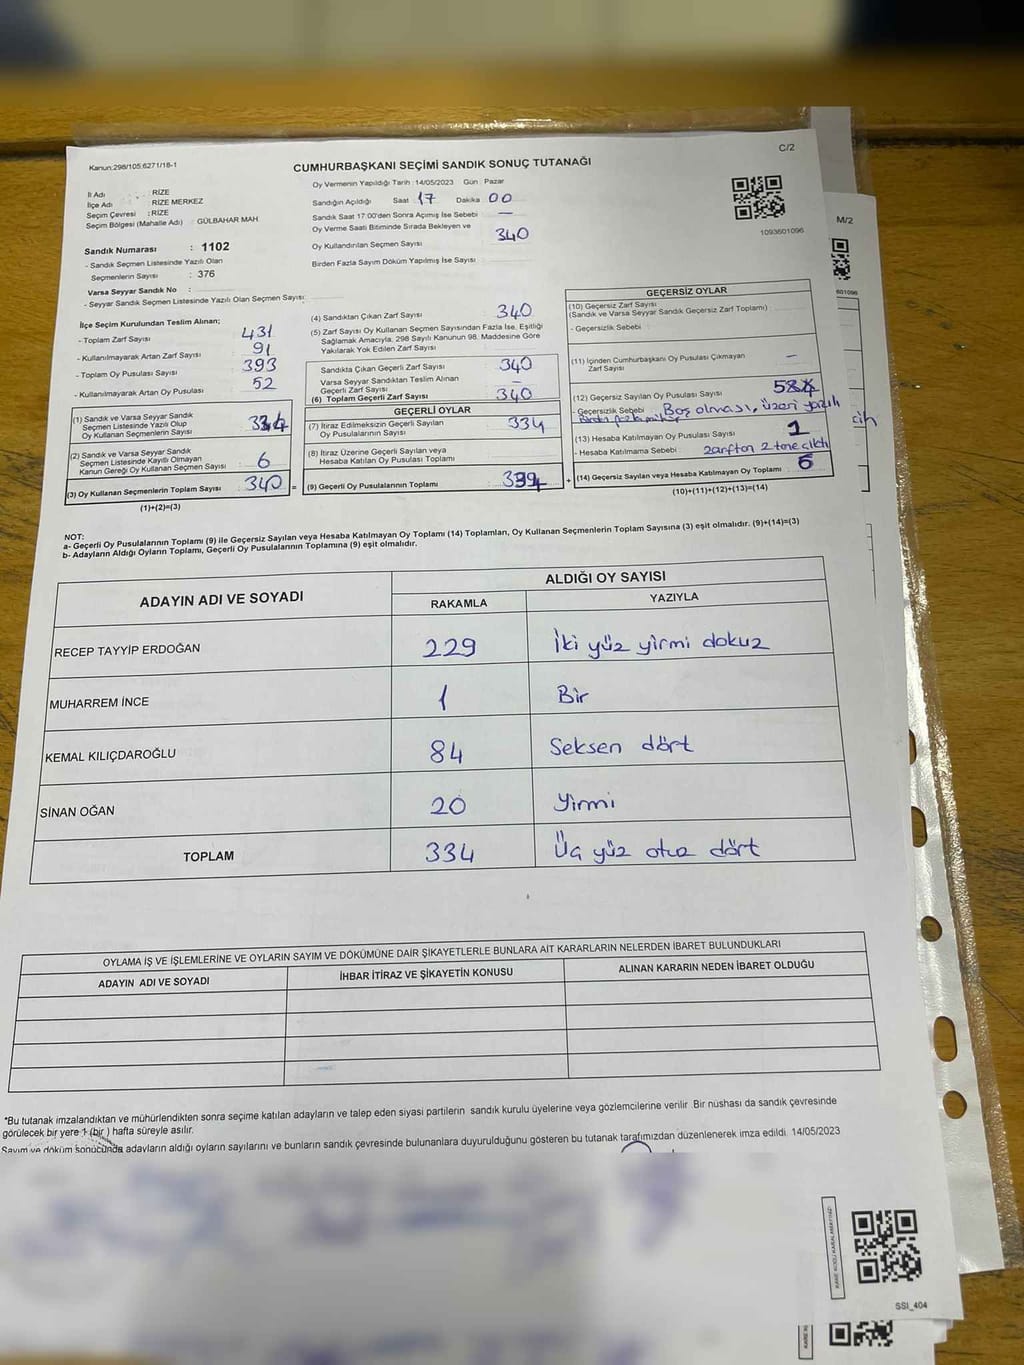 Kanun:298/105;6271/18-1
C/2
CUMHURBAŞKANI SEÇİMİ SANDIK SONUÇ TUTANAĞI
İl Adı : RİZE
İlçe Adı : RİZE MERKEZ
Seçim Çevresi : RİZE
Seçim Bölgesi (Mahalle Adı) : GÜLBAHAR MAH
Sandık Numarası : 1102
- Sandık Seçmen Listesinde Yazılı Olan
Seçmenlerin Sayısı : 376
Varsa Seyyar Sandık No :
- Seyyar Sandık Seçmen Listesinde Yazılı Olan Seçmen Sayısı:
Oy Vermenin Yapıldığı Tarih : 14/05/2023 Gün : Pazar
Sandığın Açıldığı Saat 17 Dakika 00
Sandık Saat 17:00'den Sonra Açılmış İse Sebebi —
Oy Verme Saati Bitiminde Sırada Bekleyen ve
Oy Kullandırılan Seçmen Sayısı 340
Birden Fazla Sayım Döküm Yapılmış İse Sayısı
1093601096
M/2
601096
İlçe Seçim Kurulundan Teslim Alınan;
- Toplam Zarf Sayısı 431
- Kullanılmayarak Artan Zarf Sayısı 91
- Toplam Oy Pusulası Sayısı 393
- Kullanılmayarak Artan Oy Pusulası 52
(1) Sandık ve Varsa Seyyar Sandık
Seçmen Listesinde Yazılı Olup
Oy Kullanan Seçmenlerin Sayısı 334
(2) Sandık ve Varsa Seyyar Sandık
Seçmen Listesinde Kayıtlı Olmayan
Kanun Gereği Oy Kullanan Seçmen Sayısı 6
(3) Oy Kullanan Seçmenlerin Toplam Sayısı 340
(1)+(2)=(3)
(4) Sandıktan Çıkan Zarf Sayısı 340
(5) Zarf Sayısı Oy Kullanan Seçmen Sayısından Fazla İse, Eşitliği
Sağlamak Amacıyla, 298 Sayılı Kanunun 98. Maddesine Göre
Yakılarak Yok Edilen Zarf Sayısı
Sandıkta Çıkan Geçerli Zarf Sayısı 340
Varsa Seyyar Sandıktan Teslim Alınan
Geçerli Zarf Sayısı —
(6) Toplam Geçerli Zarf Sayısı 340
GEÇERLİ OYLAR
(7) İtiraz Edilmeksizin Geçerli Sayılan
Oy Pusulalarının Sayısı 334
(8) İtiraz Üzerine Geçerli Sayılan veya
Hesaba Katılan Oy Pusulası Toplamı
= (9) Geçerli Oy Pusulalarının Toplamı 334 +
GEÇERSİZ OYLAR
(10) Geçersiz Zarf Sayısı
(Sandık ve Varsa Seyyar Sandık Geçersiz Zarf Toplamı)
- Geçersizlik Sebebi
(11) İçinden Cumhurbaşkanı Oy Pusulası Çıkmayan
Zarf Sayısı —
(12) Geçersiz Sayılan Oy Pusulası Sayısı 5
- Geçersizlik Sebebi Boş olması, üzeri yazılı
(13) Hesaba Katılmayan Oy Pusulası Sayısı 1
- Hesaba Katılmama Sebebi zarftan 2 tane çıktı
(14) Geçersiz Sayılan veya Hesaba Katılmayan Oy Toplamı 6
(10)+(11)+(12)+(13)=(14)
NOT:
a- Geçerli Oy Pusulalarının Toplamı (9) ile Geçersiz Sayılan veya Hesaba Katılmayan Oy Toplamı (14) Toplamları, Oy Kullanan Seçmenlerin Toplam Sayısına (3) eşit olmalıdır. (9)+(14)=(3)
b- Adayların Aldığı Oyların Toplamı, Geçerli Oy Pusulalarının Toplamına (9) eşit olmalıdır.
ADAYIN ADI VE SOYADI
ALDIĞI OY SAYISI
RAKAMLA YAZIYLA
RECEP TAYYİP ERDOĞAN 229 İki yüz yirmi dokuz
MUHARREM İNCE 1 Bir
KEMAL KILIÇDAROĞLU 84 Seksen dört
SİNAN OĞAN 20 Yirmi
TOPLAM 334 Üç yüz otuz dört
OYLAMA İŞ VE İŞLEMLERİNE VE OYLARIN SAYIM VE DÖKÜMÜNE DAİR ŞİKAYETLERLE BUNLARA AİT KARARLARIN NELERDEN İBARET BULUNDUKLARI
ADAYIN ADI VE SOYADI İHBAR İTİRAZ VE ŞİKAYETİN KONUSU ALINAN KARARIN NEDEN İBARET OLDUĞU
*Bu tutanak imzalandıktan ve mühürlendikten sonra seçime katılan adayların ve talep eden siyasi partilerin sandık kurulu üyelerine veya gözlemcilerine verilir. Bir nüshası da sandık çevresinde
görülecek bir yere 1 (bir) hafta süreyle asılır.
Sayım ve döküm sonucunda adayların aldığı oyların sayılarını ve bunların sandık çevresinde bulunanlara duyurulduğunu gösteren bu tutanak tarafımızdan düzenlenerek imza edildi. 14/05/2023
SSI_404